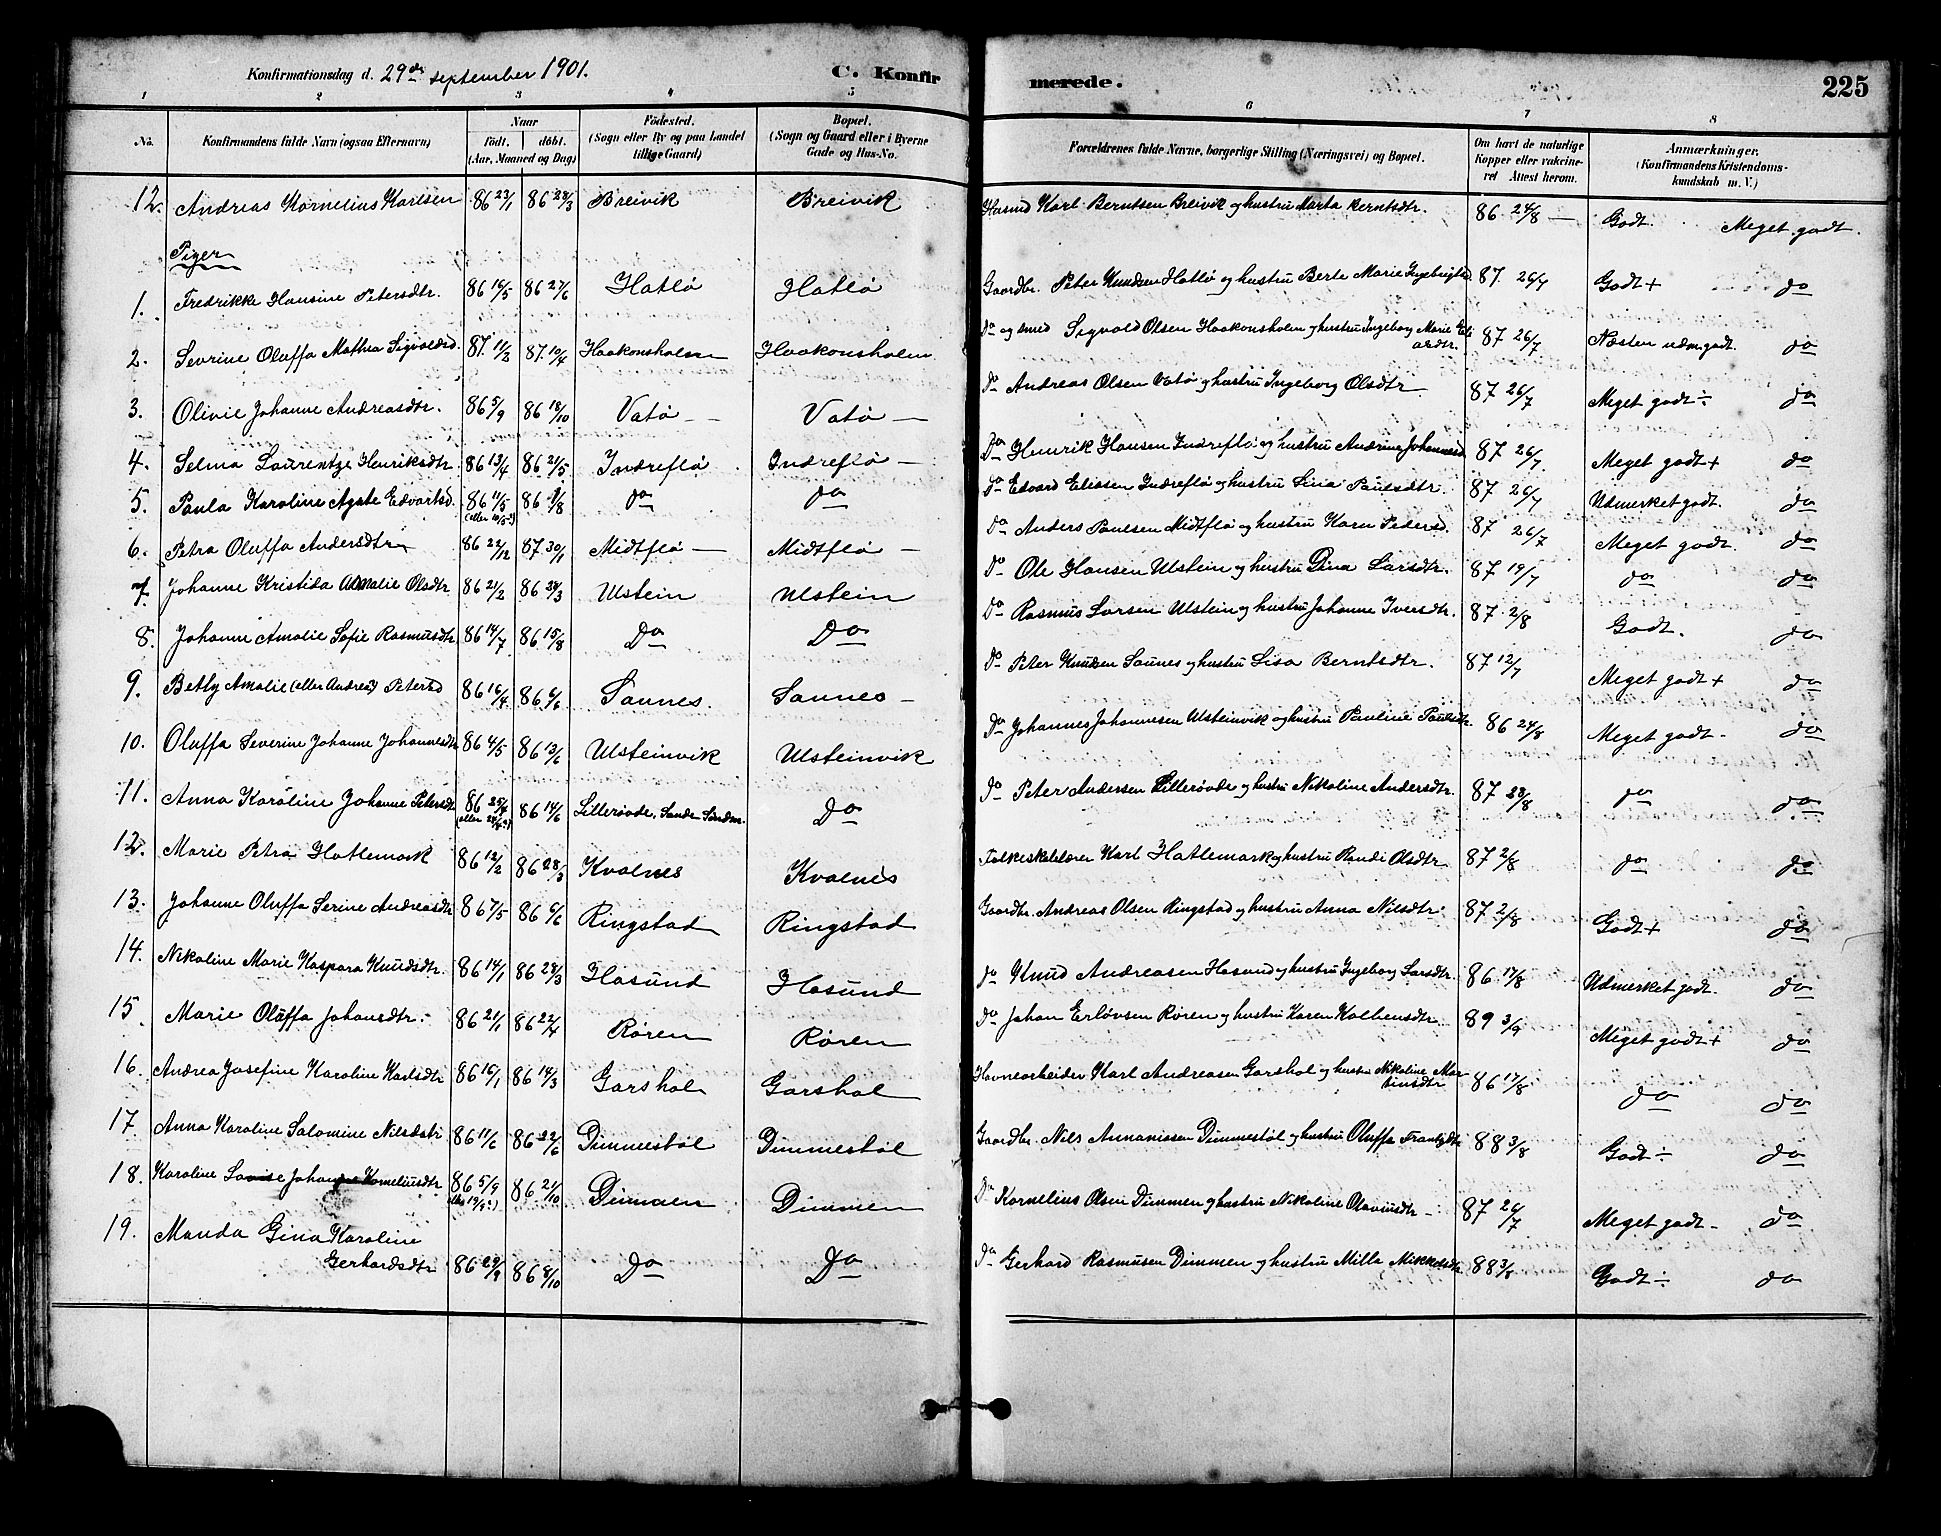 Konfirmationsdag d. 29de september 1901. C. Konfirmerede. 225
1 2 3 4 5 6 7 8
No. Konfirmandens fulde Navn (ogsaa Efternavn) Naar født. døbt. (Aar, Maaned og Dag) Fødested. (Sogn eller By og paa Landet tillige Gaard) Bopæl. (Sogn og Gaard eller i Byerne Gade og Hus-No. Forældrenes fulde Navne, borgerlige Stilling (Næringsvei) og Bopæl. Om havt de naturlige Kopper eller vakcineret. Attest herom. Anmærkninger. (Konfirmandens Kristendomskundskab m. V.)
12. Andreas Kornelius Karlsen 86 23/1 86 28/3 Breivik Breivik Husmd Karl Berntsen Breivik og hustru Marta Berntsdtr. 86 24/8 — Godt. Meget godt.
Piger
1. Fredrikke Hansine Petersdtr. 86 16/5 86 27/6 Hatlø Hatlø Gaardbr. Peter Knudsen Hatlø og hustru Berte Marie Ingebrigtsd 87. 26/7 Godt + do
2. Sevrine Oluffa Mathea Sigvaldsd. 87. 11/2 87. 10/4 Haakonsholm Haakonsholm Do og smed Sigvald Olsen Haakonsholm og hustru Ingeborg Marie Eliasdtr. 87 26/7 Næsten udm. godt. do
3. Olivie Johanne Andreasdtr. 86 5/9 86 18/10 Vatø — Vatø — Do Andreas Olsen Vatø og hustru Ingeborg Olsdtr 87 26/7 Meget godt ÷ do
4. Selma Laurentze Henriksdtr. 86 13/4 86 21/5 Indreflø Indreflø — Do Henrik Hansen Indreflø og hustru Andrine Johannesd 87 26/7. Meget godt + do
5. Paula Karoline Agate Edvartsd. 86 11/5 (eller 10/5?) 86 1/8 do do Do Edvard Eliasen Indreflø og hustru Lina Paulsdtr. 87 26/7 Udmerket godt. do
6. Petra Oluffa Andersdtr 86 22/12 87. 30/1 Midtflø — Midtflø — Do Anders Paulsen Midtflø og hustru Karn Pedersd. 87 26/7 Meget godt. do
7. Johanne Kristida Amalie Olsdtr 86 21/2 86 28/3 Ulstein Ulstein Do Ole Hansen Ulstein og hustru Dina Larsdtr. 87 19/7 do do
8. Johanne Amalie Sofie Rasmusdtr 86 14/7 86 15/8 Do Do Do Rasmus Larsen Ulstein og hustru Johanne Iversdtr. 87. 2/8 Godt. do
9. Betty Amalie (eller Andrea?) Petersd 86 16/4 86 6/6 Saunes. Saunes — Do Peter Knudsen Saunes og hustru Lisa Berntsdtr. 87 12/7 Meget godt + do
10. Oluffa Severine Johanne Johannesdtr 86 4/5 86 13/6 Ulsteinvik Ulsteinvik Do Johannes Johannesen Ulsteinvik og hustru Pauline Paulsdtr. 86 24/8 Meget godt - do
11. Anna Karoline Johanne Petersdtr 86 25/4 86 14/6 Lillerøvde, Sande Søndm. Do Do Peter Andersen Lillerøvde og hustru Nikoline Andersdtr. 87 23/8 do do
12. Marie Petra Hatlemark 86 12/2 86 28/3 Kvalnes Kvalnes Folkeskolelærer Karl Hatlemark og hustru Randi Olsdtr 87 2/8 do do
13. Johanne Oluffa Serine Andreasdtr 86 7/5 86 6/6 Ringstad Ringstad Gaardbr. Andreas Olsen Ringstad og hustru Anna Nilsdtr. 87 2/8 Godt + do
14. Nikoline Marie Kaspara Knudsdtr. 86 14/1 86 28/3 Hasund Hasund do Knud Andreasen Hasund og hustru Ingeborg Larsdtr. 86. 17/8 Udmerket godt. do
15. Marie Oluffa Johansdtr. 86 21/1 86 22/4 Røren Røren do Johan Erlovsen Røren og hustru Karen Kolbensdtr. 89 3/9 Meget godt + do
16. Andrea Josefine Karoline Karlsdtr 86 16/1 86 14/3 Garshol Garshol Havnearbeider Karl Andreasen Garshol og hustru Nikoline Martinusdtr 86 17/8 do do
17 Anna Karoline Salomine Nilsdtr 86 11/6 86 22/6 Dimmestøl Dimmestøl Gaardbr. Nils Ananiassen Dimmestøl og hustru Oluffa 88 3/8 Godt ÷ do
18. Karoline Lovise Johanne Korneliusdtr 86 5/9 (eller 19/9?) 86. 21/10 Dimmen Dimmen Do Kornelius Olsen Dimmen og hustru Nikoline Olavusdtr — 87 26/7 Meget godt - do
19. Manda Gina Karoline
Gerhardsdtr 86 29/9 86 8/10 Do Do Do Gerhard Rasmusen Dimmen og hustru Milla Mikkelsdtr 88 3/8 Godt ÷ do